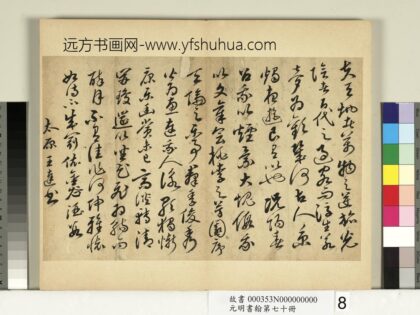 远方书画网-www.yfshuhua.com
夫天地者萬物之逆旅光
陰者百代之過客而浮生若
夢為歡幾何古人秉
燭夜遊良有以也況陽春
召我以煙景大塊假我
以文章會桃李之芳園序
天倫之樂事群季俊秀
皆為惠連吾人詠歌獨慚
康樂幽賞未已高談轉清
開瓊筵以坐花飛羽觴而
醉月不有佳作何伸雅懷
如詩不成罰依金谷酒數
太原王達書
故書 000353N000000000
元明書翰第七十冊
8